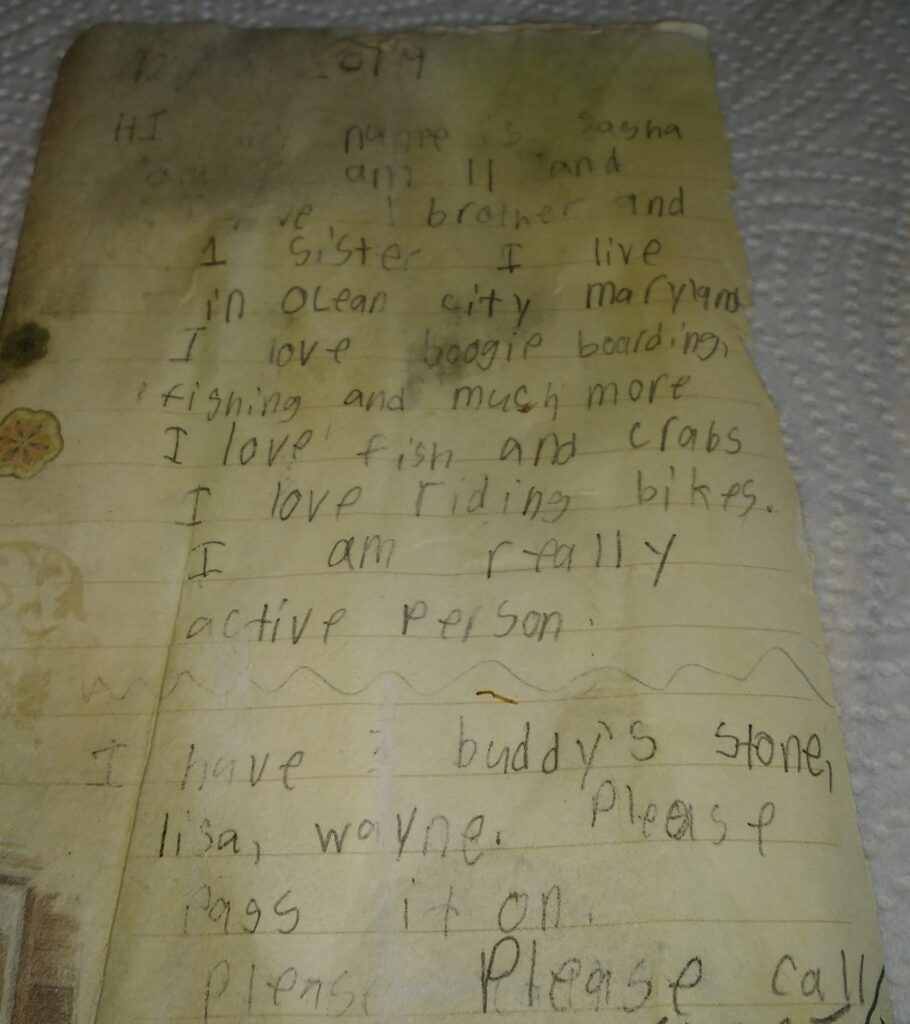 HI name is Sasha
am 11 and
brother and
1 sister I live
in Ocean city maryland
I love boogie boarding,
fishing and much more
I love fish and crabs
I love riding bikes.
I am really
active Person.
I have 3 buddy's Stone,
lisa, wayne. Please
Pass it on.
Please call